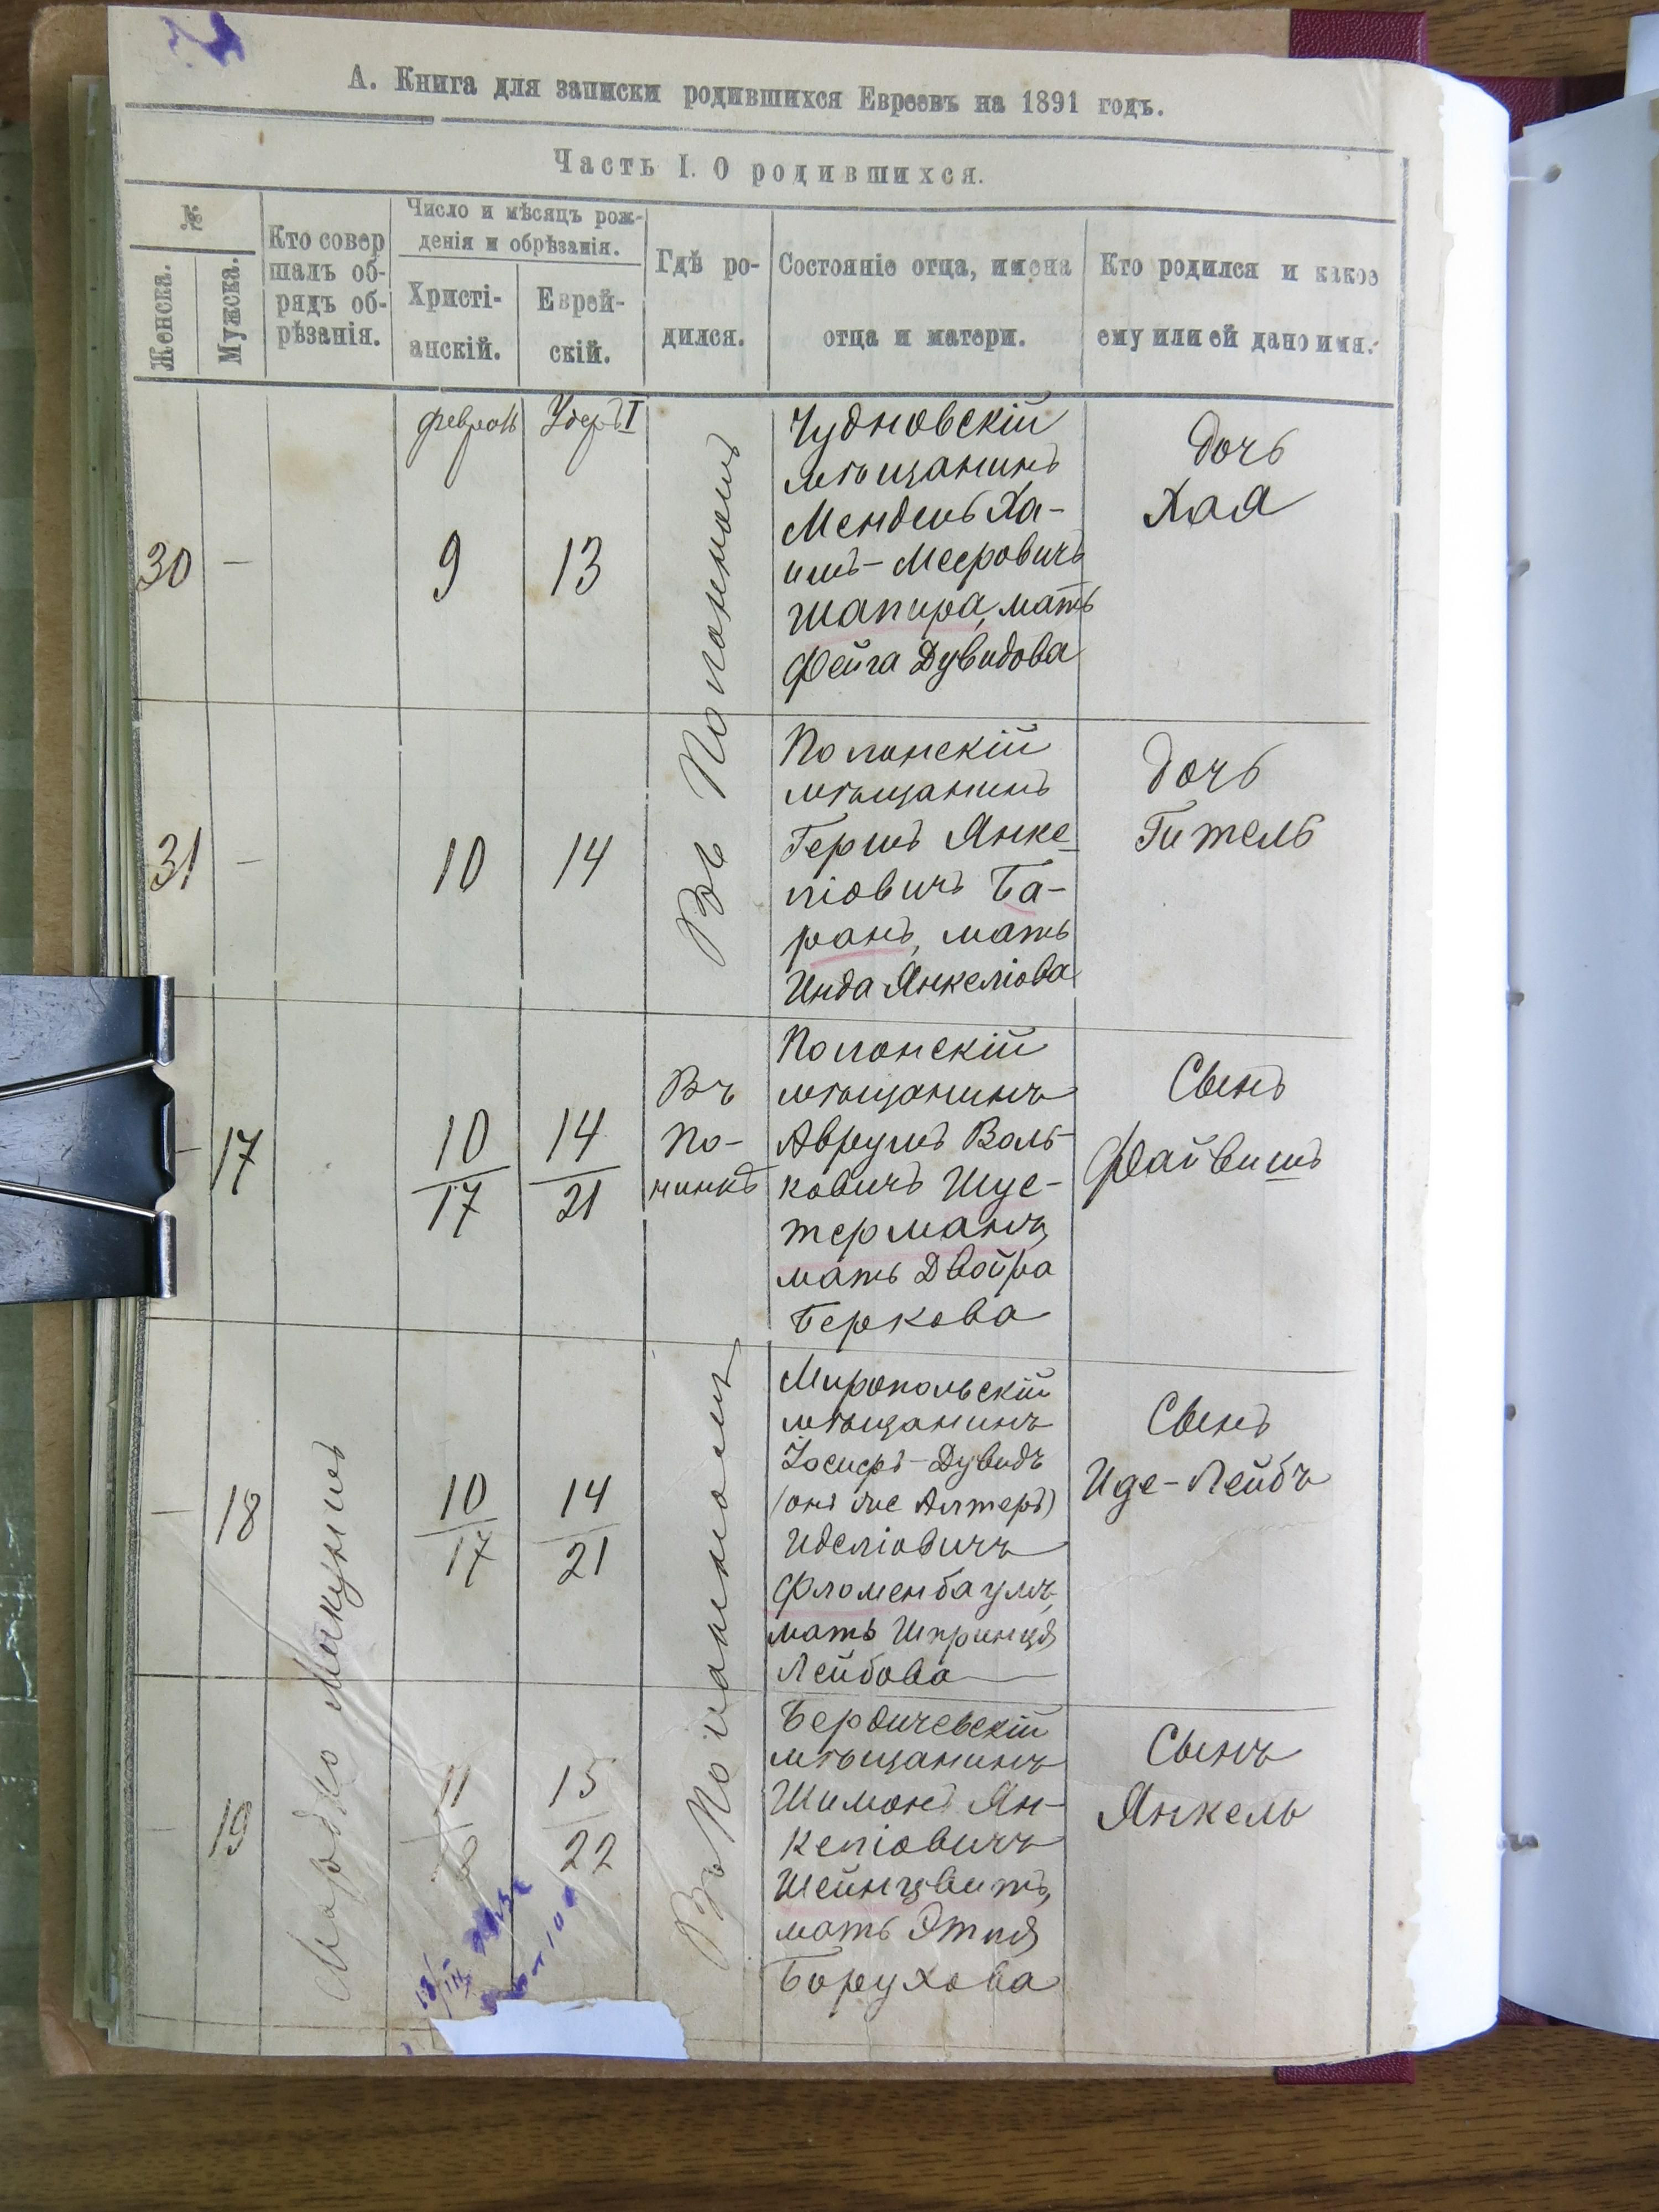 А. Книга для записки родившихся Евреевъ на 1891 годъ.
Часть I. О родившихся.
№
Женска.
Мужска.
Кто совер
шалъ об-
рядъ об-
рѣзанія.
Число и мѣсяцъ рож-
денія и обрѣзанія.
Христі-
анскій.
Еврей-
скій.
Гдѣ ро-
дился.
Состояніе отца, имена
отца и матери.
Кто родился и какое
ему или ей дано имя.
Февраль
Удеръ I
30
-
9
13
Въ Полонномъ
Чудновскій
мѣщанинъ
Мендель Ха-
имъ-Мееровичъ
Шапира, мать
Фейга Дувидова
дочь
Хая
31
-
10
14
Полонскій
мѣщанинъ
Гершъ Янке-
ліовичъ Ба-
ранъ, мать
Инда Янкеліова
дочь
Гитель
-
17
10
17
14
21
Въ
По-
нинкѣ
Полонскій
мѣщанинъ
Аврумъ Воль-
ковичъ Шус-
терманъ,
мать Двойра
Беркова
Сынъ
Файвишъ
-
18
Мордко Макушъ
10
17
14
21
Въ Полонномъ
Миропольскій
мѣщанинъ
Іосифъ-Дувидъ
(онъ же Алтеръ)
Иделіовичъ
Фломенбаумъ,
мать Шпринця
Лейбова
Сынъ
Иде-Лейбъ
-
19
11
15
22
Бердичевскій
мѣщанинъ
Шимонъ Ян-
келіовичъ
Шейнцвитъ,
мать Этля
Борухова
Сынъ
Янкель